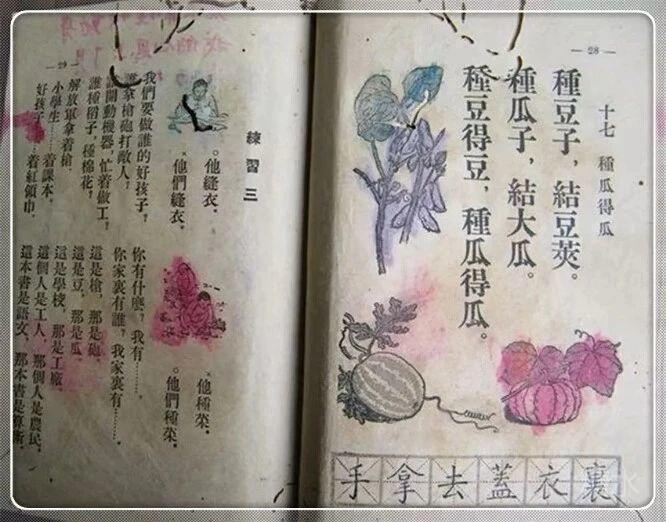 — 28 —
十七　種瓜得瓜
種豆子，結豆莢。
種瓜子，結大瓜。
種豆得豆，種瓜得瓜。
手拿去蓋衣裏
— 29 —
練習三
。他縫衣。
×他們縫衣。
×他種菜。
。他們種菜。
我們要做誰的好孩子，
誰拿槍砲打敵人，
誰開動機器，忙着做工，
誰種稻子，種棉花，
解放軍拿着槍，
小學生……着課本，
好孩子……着紅領巾。
你有什麼，我有……，
你家裏有誰，我家裏有……。
這是槍，那是砲。
這是豆，那是瓜。
這是學校，那是工廠。
這個人是工人，那個人是農民。
這本書是語文，那本書是算術。